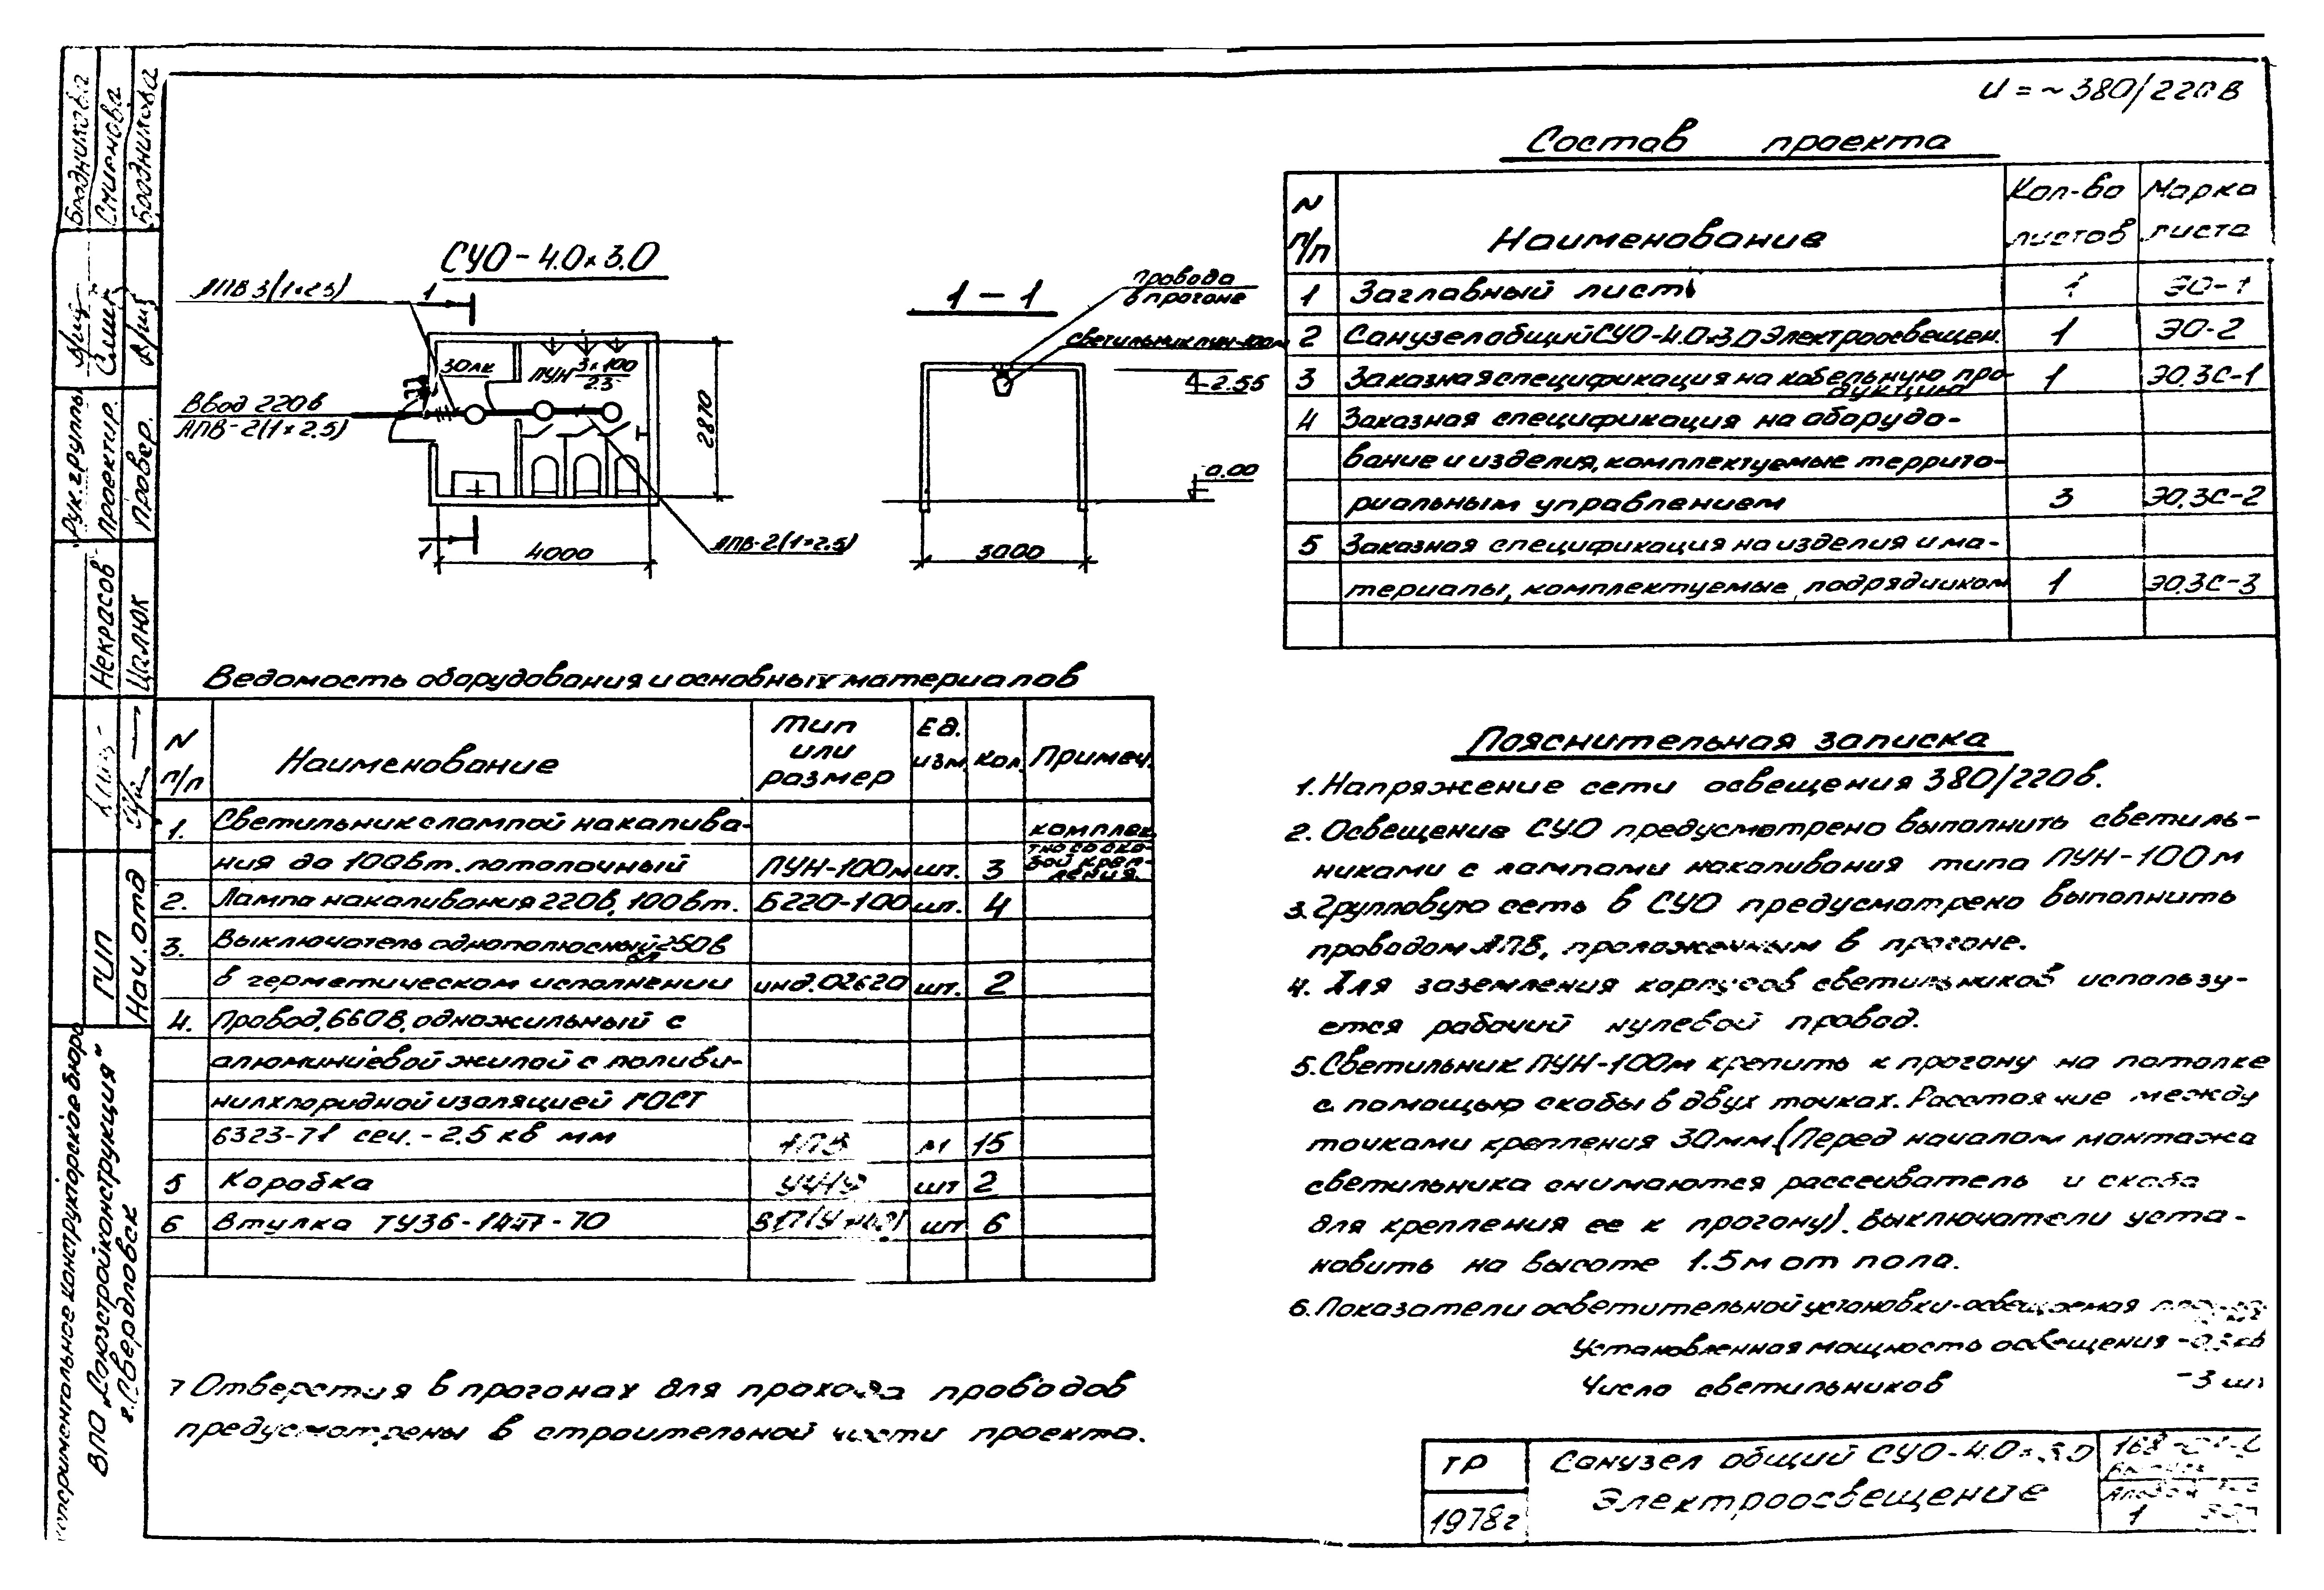 U = ~ 380/220 В
СУО - 4.0 х 3.0
АПВ 3(1×2.5)
1
Ввод 220 в
АПВ-2(1×2.5)
30лк
ПУН 3×100
2.5
2870
4000
1
АПВ-2(1×2.5)
1 - 1
провода
в прогоне
светильник ПУН-100м
2.55
0.00
3000
Состав проекта
N п/п Наименование Кол-во листов Марка листа
1 Заглавный лист 1 ЭО-1
2 Санузел общий СУО-4.0×3.0 Электроосвещен. 1 ЭО-2
3 Заказная спецификация на кабельную про-
дукцию 1 ЭО.ЗС-1
4 Заказная спецификация на оборудо-
вание и изделия, комплектуемые террито-
риальным управлением 3 ЭО.ЗС-2
5 Заказная спецификация на изделия и ма-
териалы, комплектуемые подрядчиком 1 ЭО.ЗС-3
Ведомость оборудования и основных материалов
N п/п Наименование Тип или размер Ед. изм. Кол. Примеч.
1. Светильник с лампой накалива-
ния до 100вт. потолочный ПУН-100м шт. 3 комплек-
тно со ско-
бой креп-
ления.
2. Лампа накаливания 220в, 100вт. Б220-100 шт. 4
3. Выключатель однополюсный 250в
6А
в герметическом исполнении инд.02620 шт. 2
4. Провод, 660В, одножильный с
алюминиевой жилой с поливи-
нилхлоридной изоляцией ГОСТ
6323-71 сеч. - 2,5 кв мм АПВ м 15
5 Коробка шт 2
6 Втулка ТУ36-1447-70 шт 6
Пояснительная записка
1. Напряжение сети освещения 380/220в.
2. Освещение СУО предусмотрено выполнить светиль-
никами с лампами накаливания типа ПУН-100м
3. Групповую сеть в СУО предусмотрено выполнить
проводом АПВ, проложенным в прогоне.
4. Для заземления корпусов светильников использу-
ется рабочий нулевой провод.
5. Светильник ПУН-100м крепить к прогону на потолке
с помощью скобы в двух точках. Расстояние между
точками крепления 30мм. (Перед началом монтажа
светильника снимаются рассеиватель и скоба
для крепления ее к прогону). Выключатели уста-
новить на высоте 1.5м от пола.
6. Показатели осветительной установки-освещаемая
Установленная мощность освещения - 0,3кв
Число светильников - 3 шт
7 Отверстия в прогонах для прохода проводов
предусмотрены в строительной части проекта.
ТР
1978г
Санузел общий СУО-4.0×3.0
Электроосвещение
Альбом
1
Бродникова
Смирнова
Бродникова
Рук. группы
Проектир.
Провер.
Некрасов
Цалюк
ГИП
Нач. отд
экспериментальное конструкторское бюро
ВПО „Союзстройконструкция"
г. Свердловск